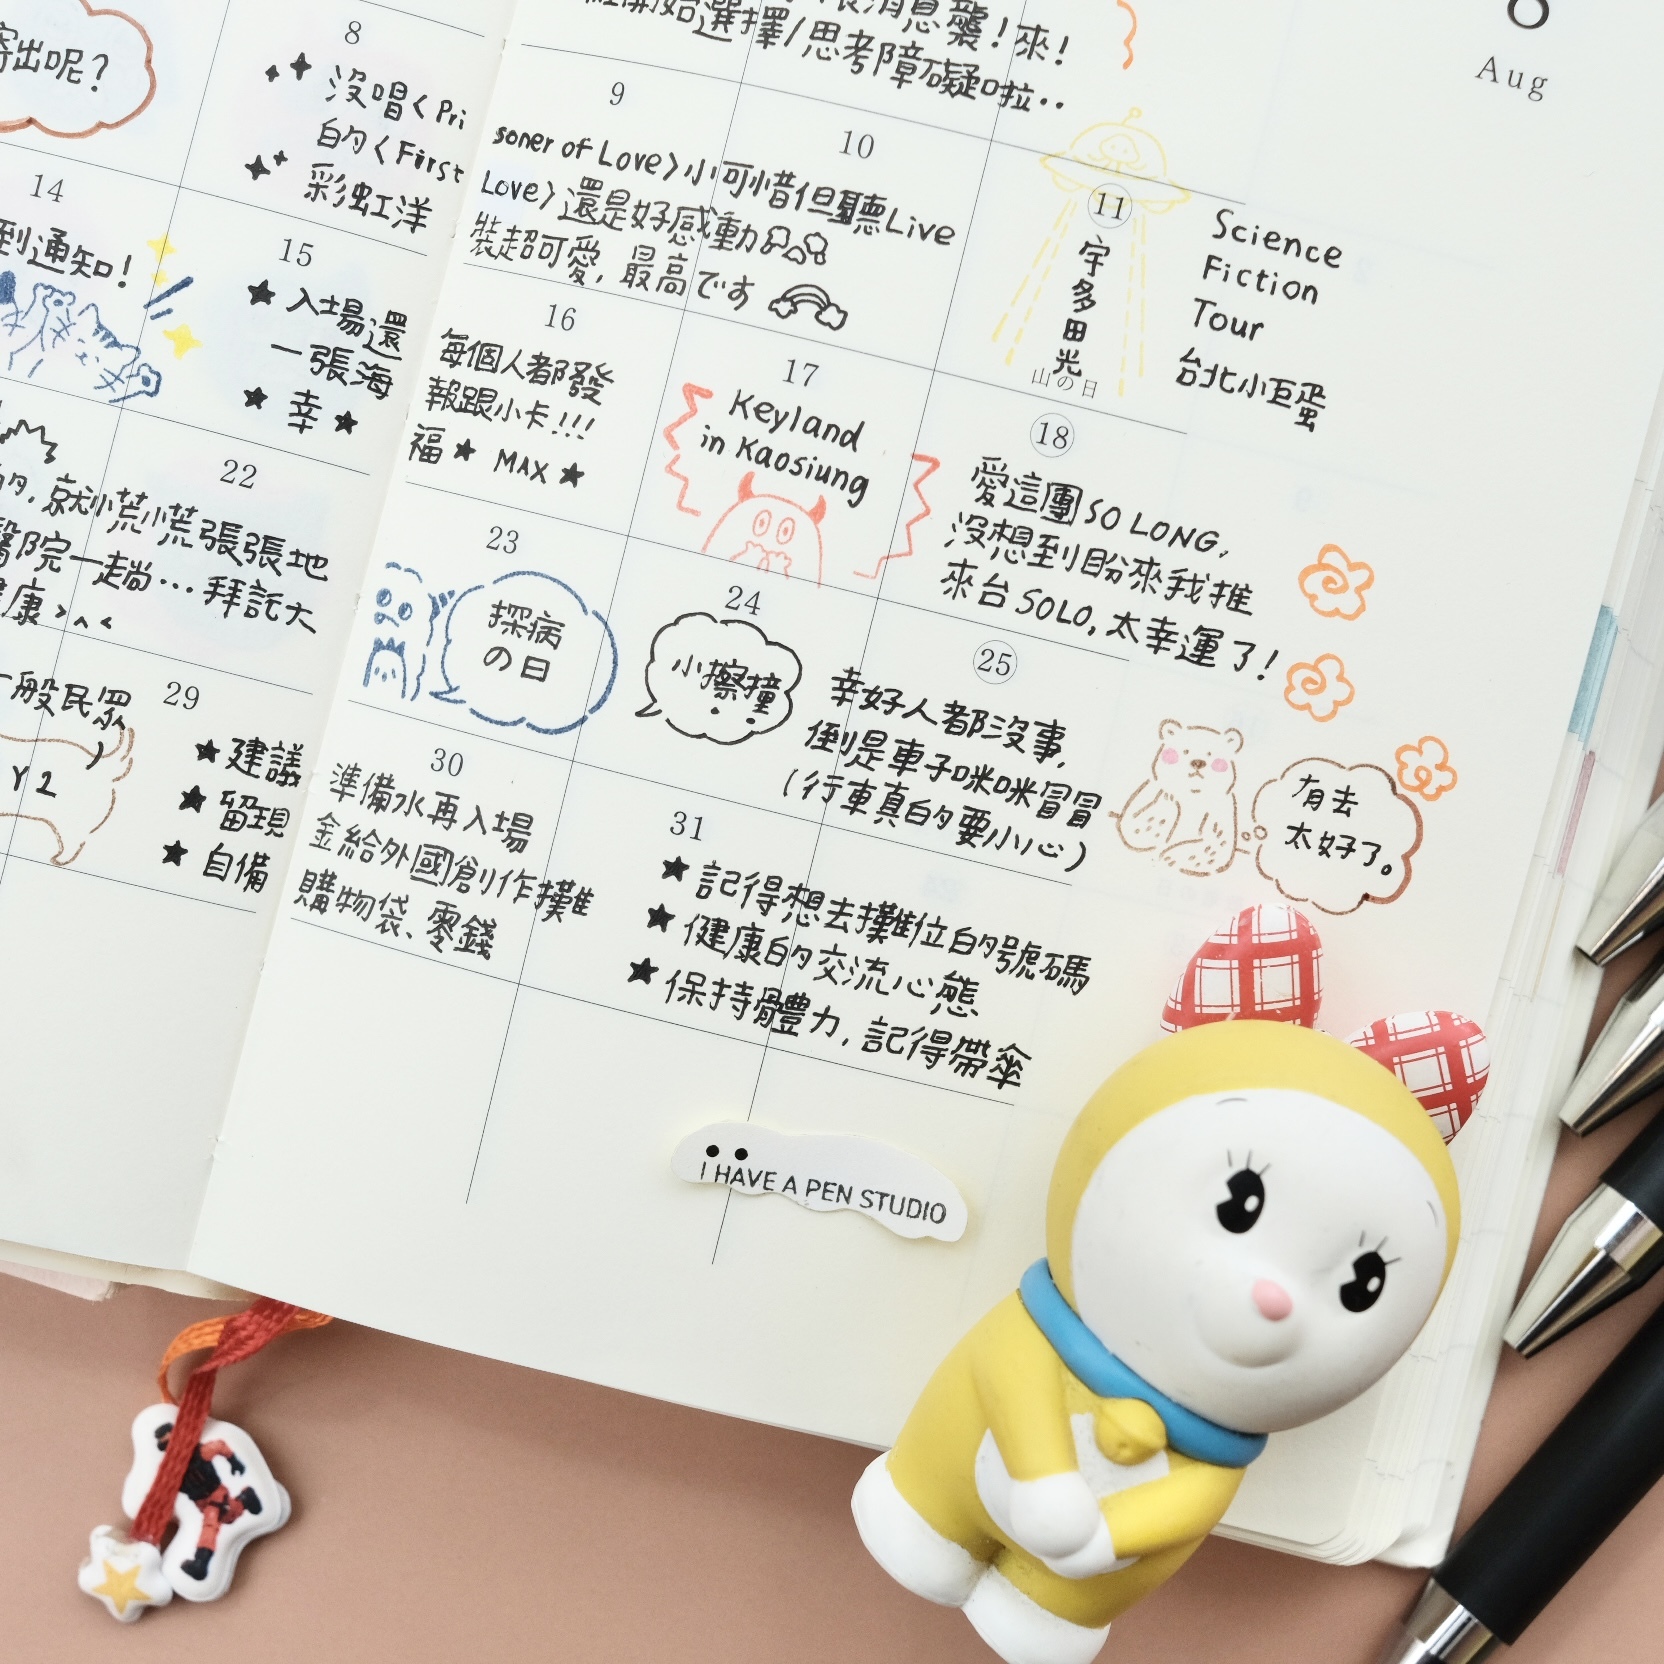 8
Aug
選擇/思考障礙啦..
寄出呢?
8
沒唱〈Pri
的〈First
彩虹洋
9
10
soner of Love〉小可惜但聽Live
Love〉還是好感動
裝超可愛,最高です
11
宇多田光
山の日
Science
Fiction
Tour
台北小巨蛋
14
到通知!
15
入場還
一張海
幸
16
每個人都發
報跟小卡!!!
福★ MAX★
17
Keyland
in Kaosiung
18
愛這團SO LONG,
沒想到盼來我推
來台SOLO,太幸運了!
22
的,就慌慌張張地
醫院一趟…拜託大
健康>^<
23
探病
の日
24
小擦撞
25
幸好人都沒事,
倒是車子咪咪冒冒
(行車真的要小心)
有去
太好了。
一般民眾
Y2
29
★建議
★留現
★自備
30
準備水再入場
金給外國創作攤
購物袋、零錢
31
★記得想去攤位的號碼
★健康的交流心態
★保持體力,記得帶傘
I HAVE A PEN STUDIO